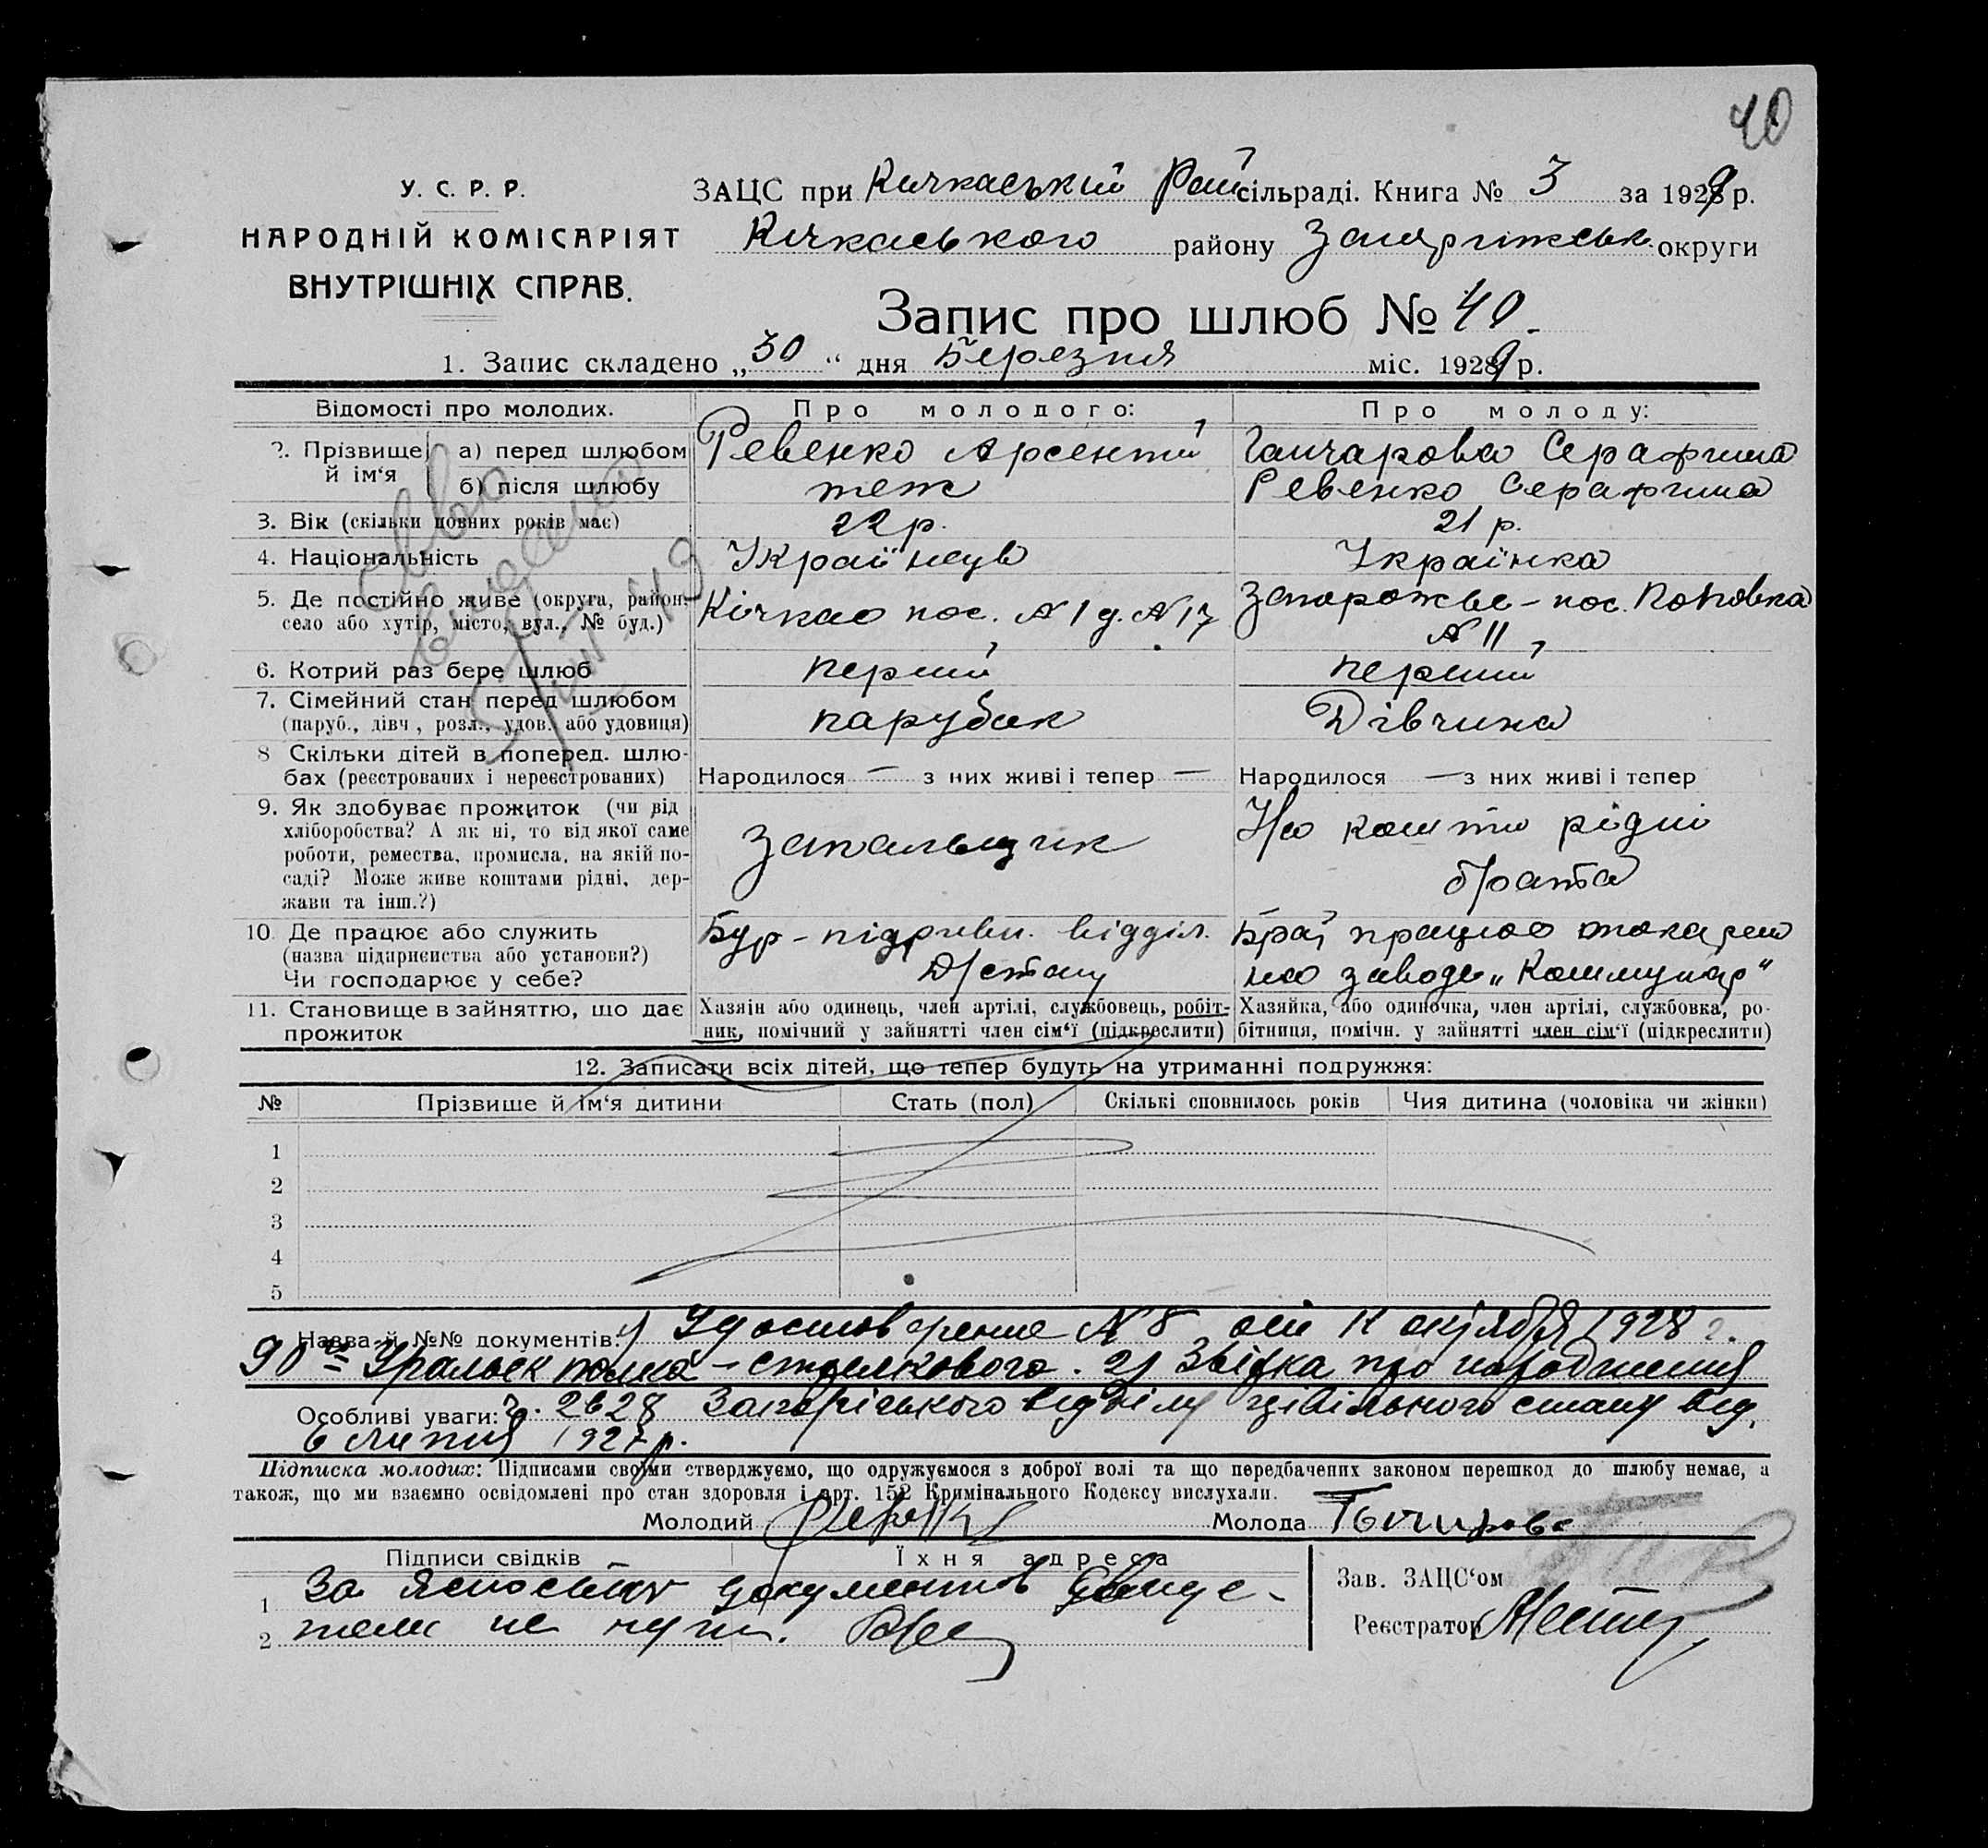 40
У. С. Р. Р.
НАРОДНІЙ КОМІСАРІЯТ
ВНУТРІШНІХ СПРАВ.
ЗАЦС при Кичкаський Рай сільраді. Книга № 3 за 1929 р.
Кичкаського району Запоріжськ округи
Запис про шлюб № 40.
1. Запис складено „30“ дня Березня міс. 1929 р.
Відомості про молодих. Про молодого: Про молоду:
2. Прізвище й ім‘я а) перед шлюбом Ревенко Арсентій Ганчарова Серафима
б) після шлюбу теж Ревенко Серафима
3. Вік (скільки повних років має) 22 р. 21 р.
4. Національність Украінець Українка
5. Де постійно живе (округа, район, село або хутір, місто, вул., № буд.) Кічкас пос. № 1 д. № 17 Запорожье - пос. Поповка № 11
6. Котрий раз бере шлюб перший перший
7. Сімейний стан перед шлюбом парубак Дівчина
(паруб., дівч., розл., удов. або удовиця)
8 Скільки дітей в поперед. шлю-
бах (реєстрованих і нереєстрованих) Народилося — з них живі і тепер — Народилося — з них живі і тепер
9. Як здобуває прожиток (чи від
хліборобства? А як ні, то від якої саме
роботи, ремества, промисла, на якій по-
саді? Може живе коштами рідні, дер-
жави та інш.?) Запальщик На кошти рідні
брата
10. Де працює або служить Бур-підривн. відділ. Брат працює токарем
(назва підприємства або установи?) Д/стану на заводе „Коммунар“
Чи господарює у себе?
11. Становище в зайняттю, що дає Хазяін або одинець, член артілі, службовець, робіт- Хазяйка, або одиночка, член артілі, службовка, ро-
прожиток ник, помічний у зайнятті член сім‘ї (підкреслити) бітниця, помічн. у зайнятті член сім‘ї (підкреслити)
12. Записати всіх дітей, що тепер будуть на утриманні подружжя:
№ Прізвище й ім‘я дитини Стать (пол) Скількі сповнилось років Чия дитина (чоловіка чи жінки)
1
2
3
4
5
Назва й №№ документів: 1) Удостоверение № 8 от 11 октября 1928 г.
90го Уральск полка - стрелкового. 2) Звідка про народження
Особливі уваги: ч. 2628 Запорізького відділу цівільного стану від
6 липня 1927 р.
Підписка молодих: Підписами своїми стверджуємо, що одружуємося з доброї волі та що передбачених законом перешкод до шлюбу немає, а
також, що ми взаємно освідомлені про стан здоровля і арт. 152 Кримінального Кодексу вислухали.
Молодий Молода Ганчарова
Підписи свідків Їхня адреса
1 За ясностью документов свиде-
2 тели не нужн.
Зав. ЗАЦС‘ом
Реєстратор